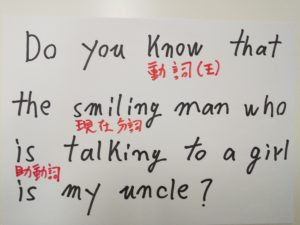 Do you know that
動詞(主)
the smiling man who
現在分詞
is talking to a girl
助動詞
is my uncle?